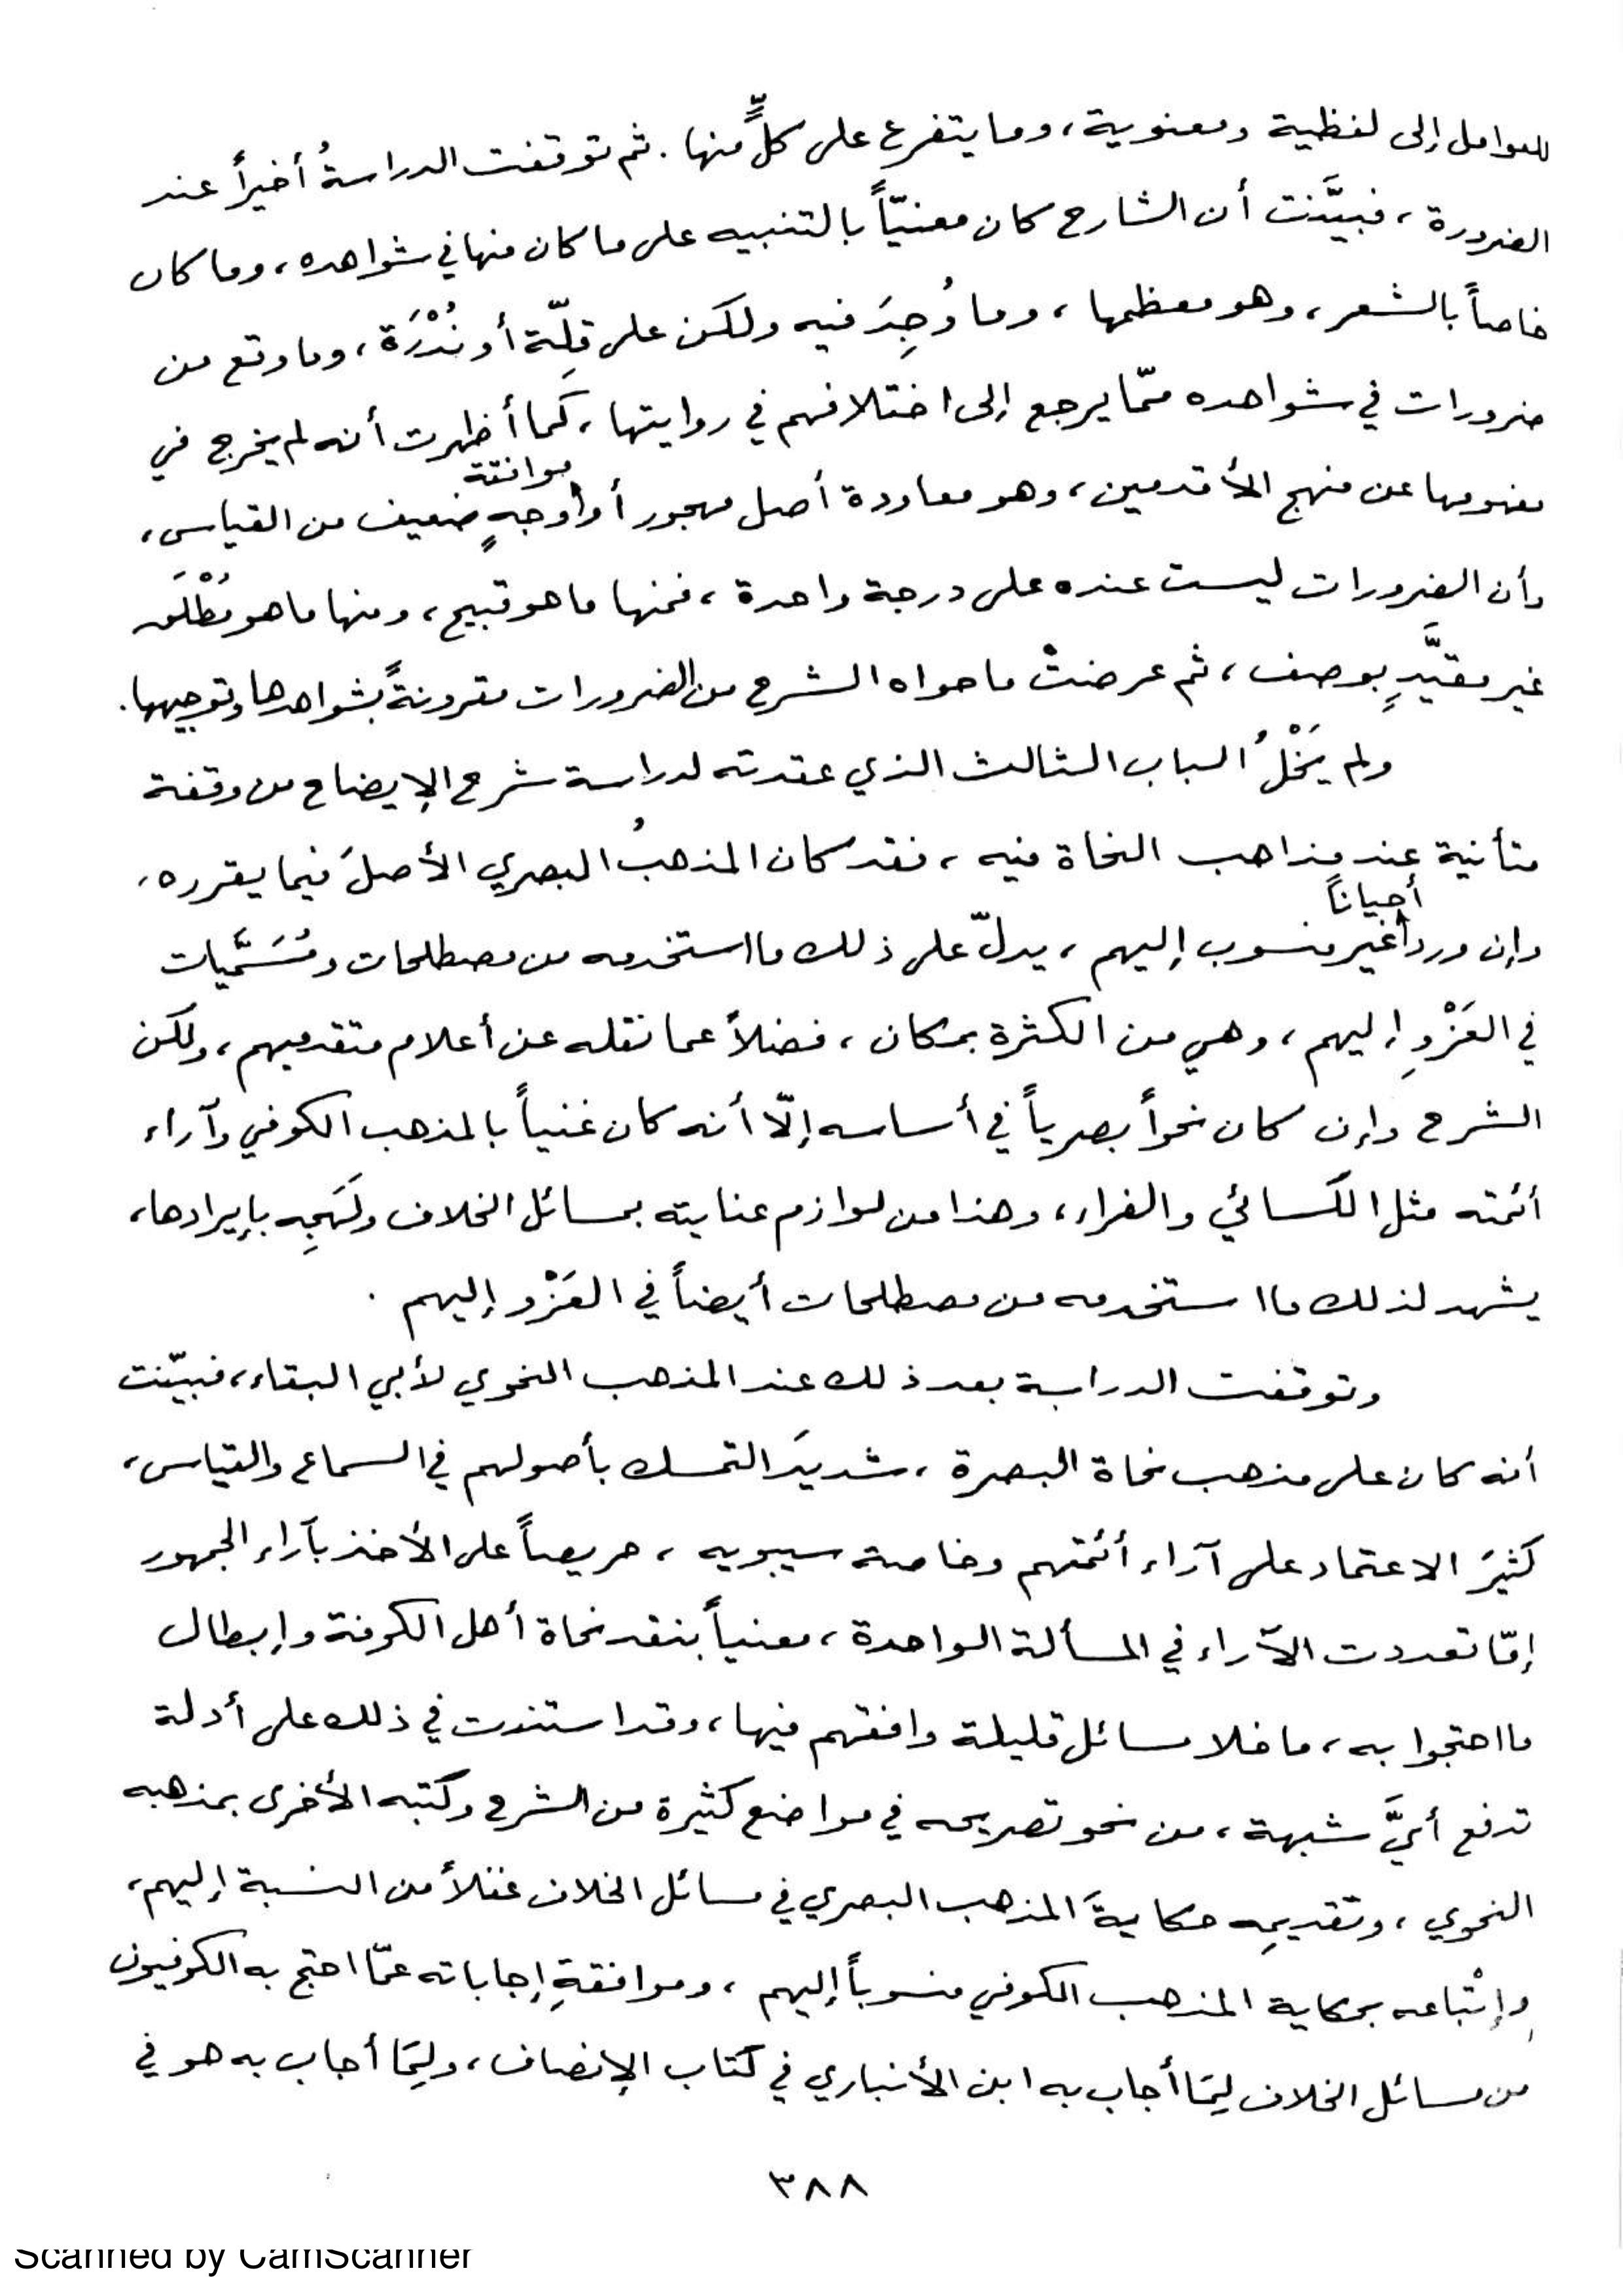 للعوامل إلى لفظية ومعنوية، وما يتفرع على كلٍّ منها. ثم توقفت الدراسةُ أخيراً عند
الضرورة، فبيَّنت أن الشارح كان معنيّاً بالتنبيه على ما كان منها في شواهده، وما كان
خاصاً بالشعر، وهو معظمها، وما وُجِدَ فيه ولكن على قِلّة أو نُدْرَة، وما وقع من
ضرورات في شواهده ممّا يرجع إلى اختلافهم في روايتها، كما أظهرت أنه لم يخرج في
مفهومها عن منهج الأقدمين، وهو معاودة أصل مهجور أو موافقة وجهٍ ضعيف من القياس،
وأن الضرورات ليست عنده على درجة واحدة، فمنها ما هو قبيح، ومنها ما هو مُطْلَق
غير مقيَّدٍ بوصف، ثم عرضتْ ما حواه الشرح من الضرورات مقرونةً بشواهدها وتوجيهها.
ولم يَخْلُ الباب الثالث الذي عقدته لدراسة شرح الإيضاح من وقفة
متأنية عند مذاهب النحاة فيه، فقد كان المذهبُ البصري الأصلَ فيما يقرره،
وإن ورد أحياناً غير منسوب إليهم، يدلّ على ذلك ما استخدمه من مصطلحات ومُسَمَّيات
في العَزْوِ إليهم، وهي من الكثرة بمكان، فضلاً عما نقله عن أعلام متقدميهم، ولكن
الشرح وإن كان نحواً بصرياً في أساسه إلّا أنه كان غنياً بالمذهب الكوفي وآراء
أئمته مثل الكسائي والفراء، وهذا من لوازم عنايته بمسائل الخلاف ولَهَجِه بإيرادها،
يشهد لذلك ما استخدمه من مصطلحات أيضاً في العَزْو إليهم.
وتوقفت الدراسة بعد ذلك عند المذهب النحوي لأبي البقاء، فبيّنت
أنه كان على مذهب نحاة البصرة، شديدَ التمسك بأصولهم في السماع والقياس،
كثيَر الاعتماد على آراء أئمتهم وخاصة سيبويه، حريصاً على الأخذ بآراء الجمهور
إمّا تعددت الآراء في المسألة الواحدة، معنياً بنقد نحاة أهل الكوفة وإبطال
ما احتجوا به، ما خلا مسائل قليلة وافقهم فيها، وقد استندت في ذلك على أدلة
تدفع أيَّ شبهة، من نحو تصريحه في مواضع كثيرة من الشرح وكتبه الأخرى بمذهبه
النحوي، وتقديمِه حكايةَ المذهب البصري في مسائل الخلاف غفلاً من النسبة إليهم،
وإتْباعه بحكاية المذهب الكوفي منسوباً إليهم، وموافقةِ إجاباته عمّا احتج به الكوفيون
من مسائل الخلاف لِمَا أجاب به ابن الأنباري في كتاب الإنصاف، ولِمَا أجاب به هو في
٣٨٨
Scanned by CamScanner